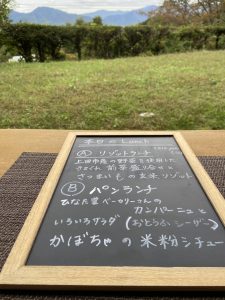 本日のLunch
Ⓐ リゾットランチ
上田市産の野菜を使用した
前菜盛り合せ
さつまいもの玄米リゾット
Ⓑ パンランチ
ひなた屋ベーカリーさんの
カンパーニュと
いろいろサラダ (おとうふシーザー)
かぼちゃの米粉シチュー